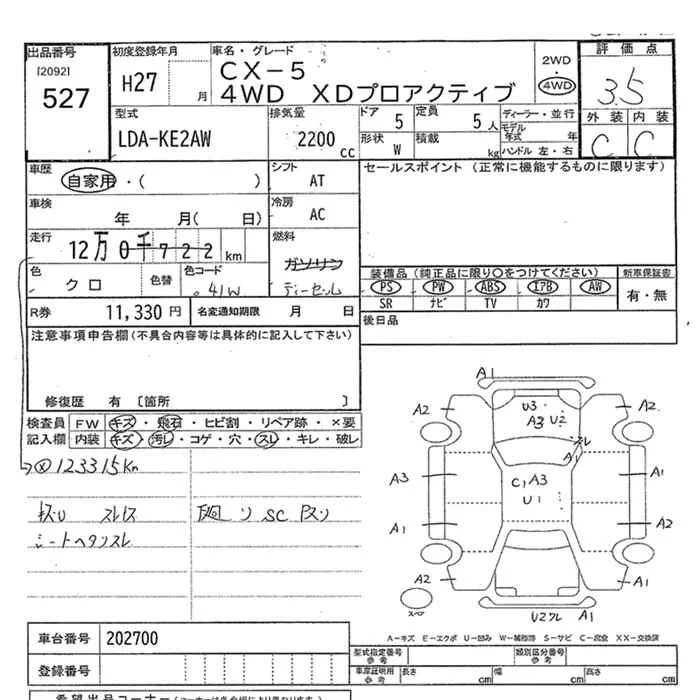 出品番号
[2092]
527
初度登録年月
H27
月
車名・グレード
CX-5
4WD XDプロアクティブ
2WD
4WD
評価点
3.5
外装 内装
C C
型式
LDA-KE2AW
排気量
2200
cc
ドア
5
定員
5 人
形状
W
積載
kg
ディーラー・並行
モデル年式 年
ハンドル 左・右
車歴
自家用・( )
シフト
AT
セールスポイント (正常に機能するものに限ります)
車検
年 月( 日)
冷房
AC
走行
12万0千722 km
燃料
ガソリン
ディーゼル
色
クロ
色替
色コード
41W
装備品(純正品に限り○をつけてください)
PS PW ABS エアB AW
SR ナビ TV カワ
新車保証書
有・無
R券
11,330 円
名変通知期限 月 日
後日品
注意事項申告欄(不具合内容等は具体的に記入して下さい)
修復歴 有 [箇所 ]
検査員
記入欄
FW キズ・飛石・ヒビ割・リペア跡・×要
内装 キズ・汚レ・コゲ・穴・スレ・キレ・破レ
123315Km
シートヘタリスレ
A1
A2
U3
A3 U2
A2
スレ
A1
A3
C1 A3
U1
A1
A1
A2
A2
A1
U2スレ A1
A-キズ E-エクボ U-凹み W-補修跡 S-サビ C-腐食 XX-交換済
車台番号
202700
登録番号
型式指定番号
参考
類別区分番号
参考
車庫証明用
参考
長さ cm
幅 cm
高さ cm
希望出品コーナー